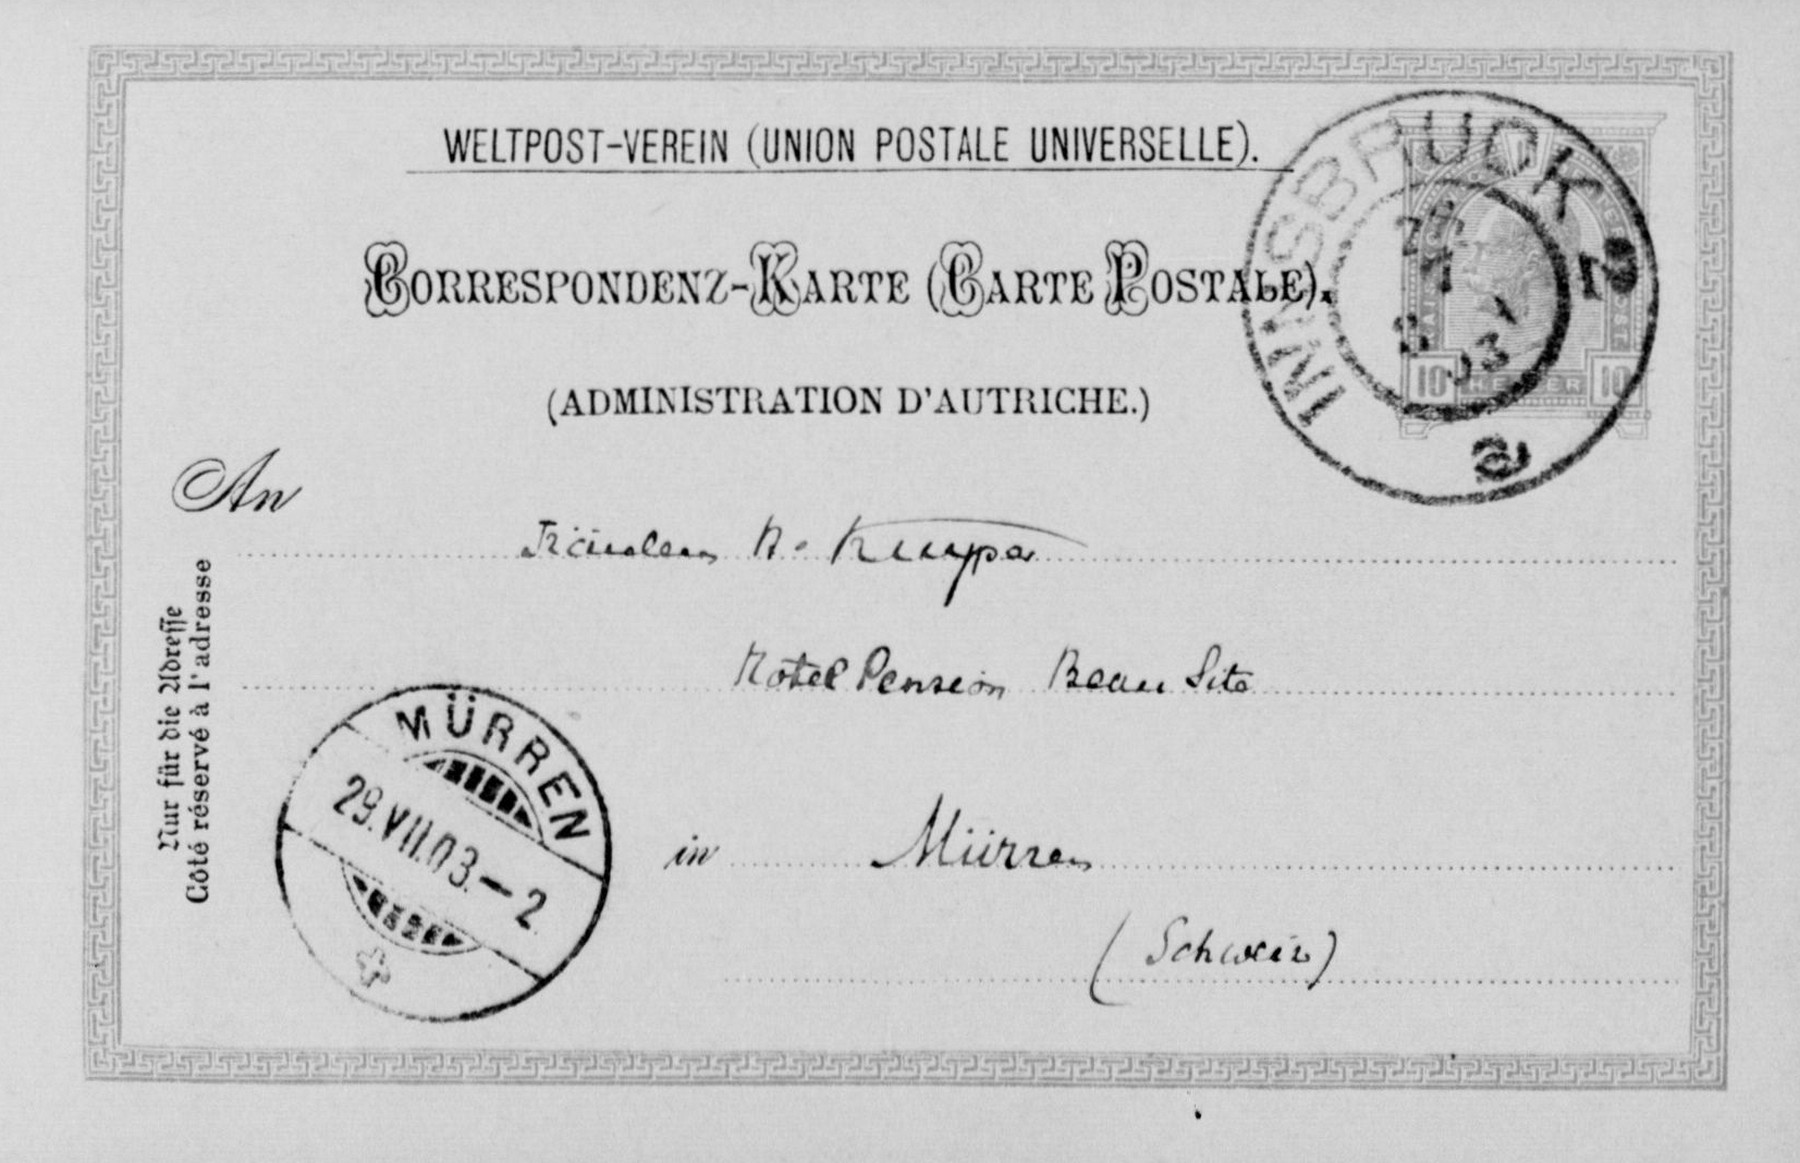 WELTPOST-VEREIN (UNION POSTALE UNIVERSELLE).
CORRESPONDENZ-KARTE (CARTE POSTALE).
(ADMINISTRATION D'AUTRICHE.)
INNSBRUCK 2
03
10 HELLER 10
An
Fräulein A.
Hôtel Pension Beau Site
in Mürren
(Schweiz)
Nur für die Adresse
Côté réservé à l'adresse
MÜRREN
29.VII.03.–2